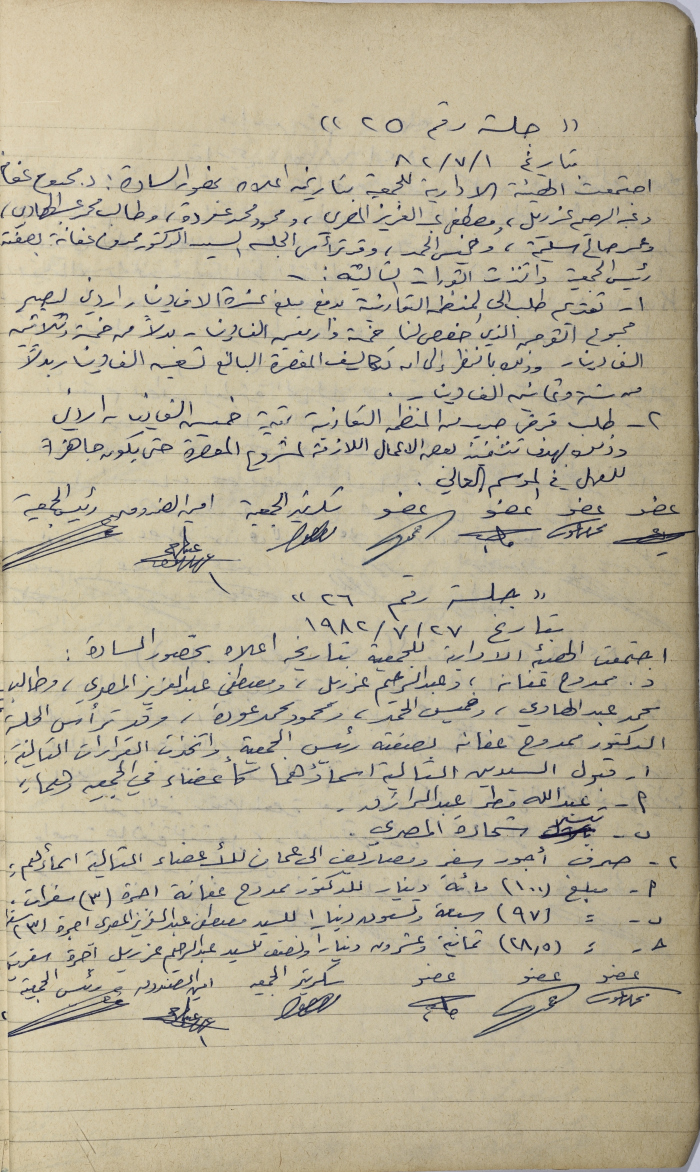 « جلسة رقم ٢٥ »
بتاريخ ٨٢/٧/١
اجتمعت الهيئة الادارية للجمعية بتاريخه اعلاه بحضور السادة: د. ممدوح عفانة
وعبد الرحيم غزريل، ومصطفى عبد العزيز المصري، ومحمود محمد عودة، وطالب محمد عبد الهادي،
وعمر صالح، وخميس الحمد، وقد ترأس الجلسة السيد الدكتور ممدوح عفانة بصفته
رئيس الجمعية واتخذت القرارات التالية: -
١ - تقديم طلب الى المنظمة التعاونية بدفع مبلغ عشرة الاف دينار اردني ليصبح
مجموع القرض الذي خصص لنا خمسة واربعين الف دينار بدلاً من خمسة وثلاثين
الف دينار وذلك بالنظر إلى ان تكاليف المعصرة البالغ تسعين الف دينار بدلاً
من ستة وثمانين الف دينار.
٢ - طلب قرض من المنظمة التعاونية بقيمة خمسين الف دينار اردني
وذلك بهدف بعض الاعمال اللازمة لمشروع المعصرة حتى يكون جاهزاً
للعمل في الموسم الحالي.
عضو عضو عضو عضو سكرتير الجمعية امين الصندوق رئيس الجمعية
« جلسة رقم ٢٦ »
بتاريخ ١٩٨٢/٧/٢٧
اجتمعت الهيئة الادارية للجمعية بتاريخه اعلاه بحضور السادة:
د. ممدوح عفانة، وعبد الرحيم غزريل، ومصطفى عبد العزيز المصري، وطالب
محمد عبد الهادي، وخميس الحمد، ومحمود محمد عودة، وقد ترأس الجلسة
الدكتور ممدوح عفانة بصفته رئيس الجمعية واتخذت القرارات التالية:
١ - قبول السيدين التالية اسماؤهما كأعضاء في الجمعية وهما:
٢ - عبدالله مطر عبد الرازق.
ب - شحادة المصري.
٢ - صرف أجور سفر ومصاريف الى عمان للأعضاء التالية اسماؤهم:
٢ - مبلغ (١٠٠) مائة دينار للدكتور ممدوح عفانة اجرة (٣) سفرات.
ب - = (٩٧) سبعة وتسعون دينارا للسيد مصطفى عبد العزيز المصري اجرة (٣)
ج - = (٢٨,٥) ثمانية وعشرون دينارا ونصف للسيد عبد الرحيم غزريل اجرة سفرية
عضو عضو عضو سكرتير الجمعية امين الصندوق رئيس الجمعية